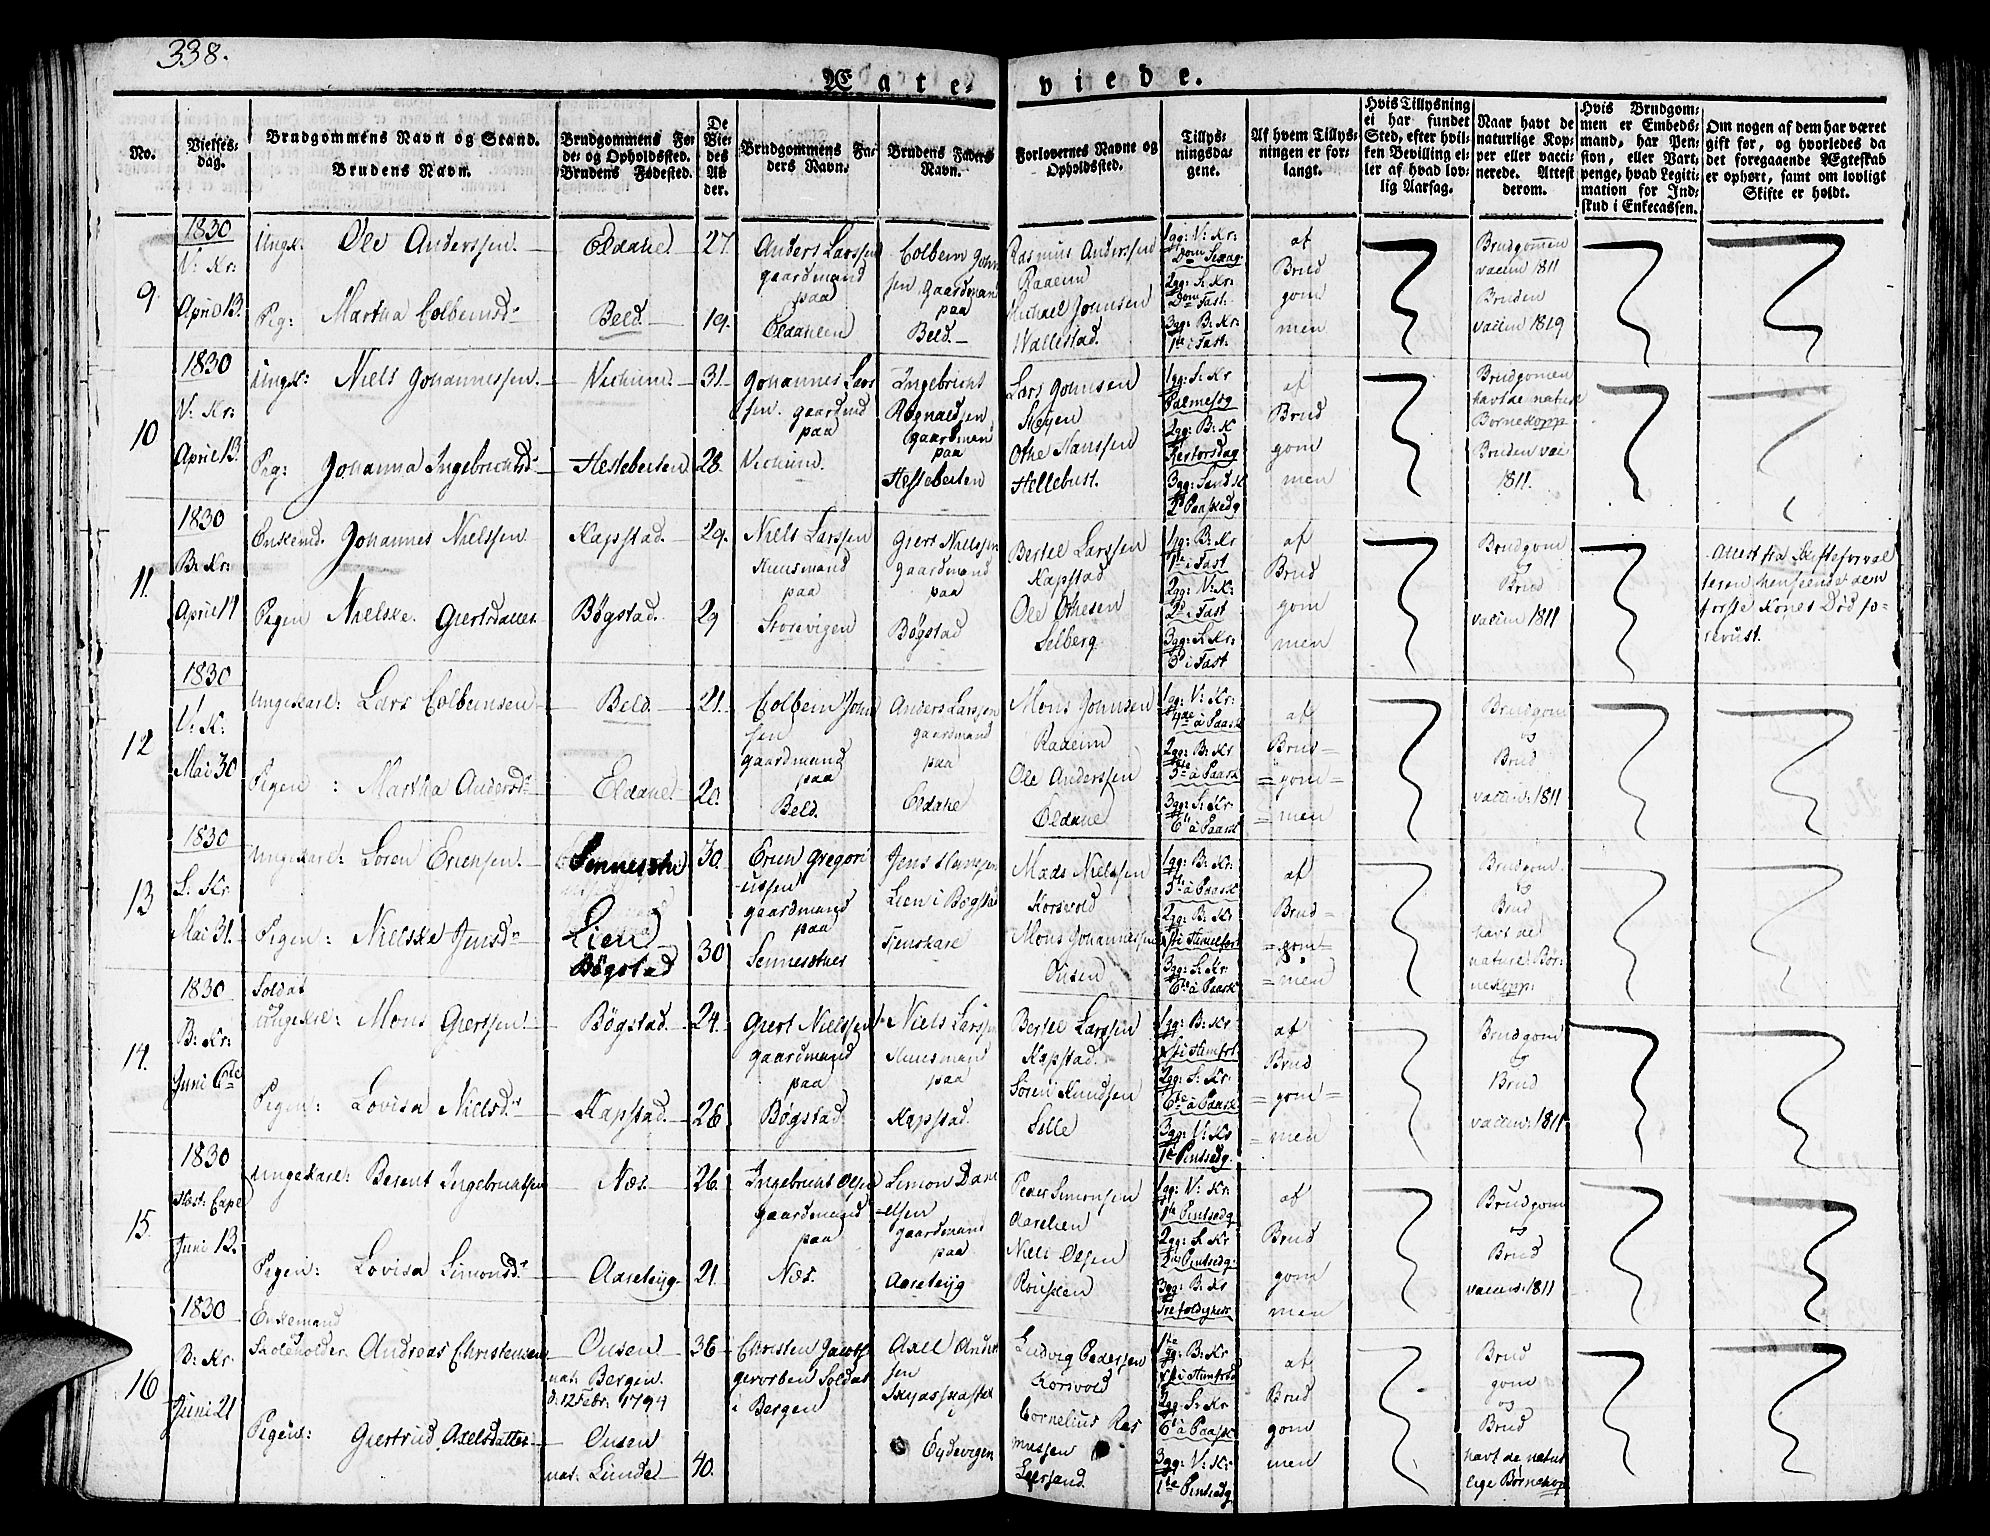 338.
Ægte
viede.
No.
Vielses-
dag.
Brudgommens Navn og Stand.
Brudens Navn.
Brudgommens Fø-
de- og Opholdssted.
Brudens Fødested.
De
Vie-
des
Al-
der.
Brudgommens Fa-
ders Navn.
Brudens Faders
Navn.
Forlovernes Navne og
Opholdssted.
Tillys-
ningsda-
gene.
Af hvem Tillys-
ningen er for-
langt.
Hvis Tillysning
ei har fundet
Sted, efter hvil-
ken Bevilling el-
ler af hvad lov-
lig Aarsag.
Naar havt de
naturlige Kop-
per eller vacci-
nerede. Attest
derom.
Hvis Brudgom-
men er Embeds-
mand, har Pen-
sion, eller Vart-
penge, hvad Legiti-
mation for Ind-
skud i Enkecassen.
Om nogen af dem har været
gift før, og hvorledes da
det foregaaende Ægteskab
er ophørt, samt om lovligt
Skifte er holdt.
9.
1830
V: Kr:
April 13.
Ungk: Ole Anderssen.
Pig: Martha Colbeinsd
Eldahl
Beld.
27.
19.
Anders Larssen
gaardmand
paa
Eldahlen
Colbein John
sen gaardman
paa
Beld.
Rasmus Anderssen
Raaeim
Michael Johnsen
Wallestad.
1gg: V: Kr:
2gg: S: Kr:
3gg: B: Kr:
1te i Fast.
af
Brud
gom
men
Brudgommen
vaccin 1811
Bruden
vaccin 1819
10
1830
V: Kr:
April 13.
Ungk: Niels Johannessen.
Pig: Johanna Ingebrichtsd
Hestebeiten
31.
28.
Johannes Lars
sen. gaardmd
paa
Ingebricht
Rognaldsen
gaardman
paa
Hestebeiten
Lars Johnsen
Othe Hanssen
Hellebust.
1gg: S: Kr
Palmesøg
2gg: B: K
Skertorsdag
2d Paaskedg
af
Brud
gom
men
Brudgomen
havt de natur
Børnekopp
Bruden vac
1811.
11.
1830
B: Kr:
April 11
Enkemd. Johannes Nielssen
Pigen Nielske Giertsdatter.
Kapstad.
Bøgstad.
29.
29
Niels Larssen
Huusmand
paa
Storevigen
Giert Nielssen
gaardmand
paa
Bøgstad
Bertel Larssen
Kapstad
Ole Othesen
Selberg
1gg: B: Kr
1te i Fast
2gg: V: K:
2d i Fast
3gg: S: Kr:
3d i Fast
af
Brud
gom
men
Brudgom
og
Brud
vaccin 1811
Attest fra Skifteforval
teren henseende den
første Kones Død p=
revist.
12
1830
V: K:
Mai 30
Ungekarl: Lars Colbeinsen
Pigen: Martha Andersd
Beld.
Eldahl
21.
20.
Colbein John
sen
gaardmand
paa
Beld.
Anders Larssen
gaardmand
paa
Eldahl
Mons Johnsen
Raaeim
Ole Anderssen
Eldahl
1gg: V: Kr:
2gg: B: Kr
3gg: S: Kr.
af
Brud=
=gom=
=men
Brudgom
og
Brud
vaccin: 1811
13
1830
S: Kr
Mai 31.
Ungekarl: Søren Erichsen.
Pigen: Nielske Jensd
Lien
Bøgstad
30.
30
Erich Gregori
-ussen
gaardmand
paa
Jens Hanssen
Lien i Bøgstad
Mads Nielssen
Korsvold
Mons Johannessen
Ousen
1gg: B: Kr:
2gg: B: Kr
3gg: S: Kr:
af
Brud=
=gom=
=men
Brudgom
og
Brud
havt de
naturl: Bør-
nekopp:
14.
1830
B: Kr:
Juni 6te
Soldat
Ungekrl: Mons Giertsen
Pigen: Lovisa Nielsd
Bøgstad.
Kapstad.
24.
26
Giert Nielssen
gaardmand
paa
Bøgstad.
Niels Larssen
Huusmand
paa
Kapstad
Bertel Larssen
Kapstad.
Søren Knudssen
Solle
1gg: B: Kr
2gg: S: Kr:
3gg: V: Kr
1te Pintsedg.
af
Brud
=gom=
=men
Brudgom
og
Brud
vaccin: 1811
15.
1830
Juni 13.
Ungekarl: Berent Ingebrichtsen
Pigen: Lovisa Simonsd
Næs.
Aarebryg
26.
21.
Ingebricht Olsen
gaardmand
paa
Næs.
Simon Dani
-elsen
gaardmand
paa
Peder Simonsen
Niels Olsen
1gg: V: Kr.
1te Pintsedg
2gg: S: Kr
2den Pintsedg.
3gg: B: Kr
Trefoldighedsr
af
Brud
gom
men
Brudgom
og
Brud
vaccin: 1811
16
1830
V: Kr.
Juni 21
Enkemand
og
Skoleholder. Andreas Christensen
Pigen: Giertrud Axelsdatter
Ousen
nat: Bergen.
d. 12 Febr. 1794
Ousen
nat: Lunde
36
40.
Christen Jacobs
gevorben Soldat
i Bergen
Axel Ander
sen
i
Eydevigen
Ludvig Pedersen
Korsvold
Cornelius Ras
mussen
Leersand.
1te
1gg: B: Kr
2gg: S: Kr
3gg: V: Kr:
1te Pintsedg.
af
Brud
gom
men
Brud
gom
og
Brud
havt de natur
lige Børnekop